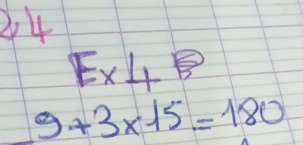 24
Ex 4 B
9+3×15=180